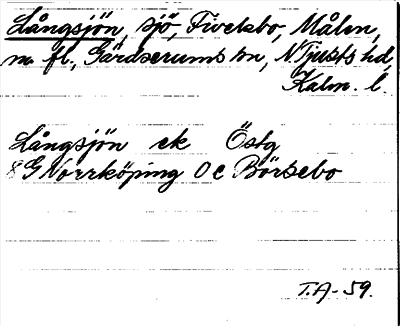 Långsjön, sjö, Fivelsbo, Målm,
m. fl., Gärdserums sn, N. Tjusts hd,
Kalm. l.
Långsjön ek Östg
8G Norrköping 0c Börsebo
T.A-59.